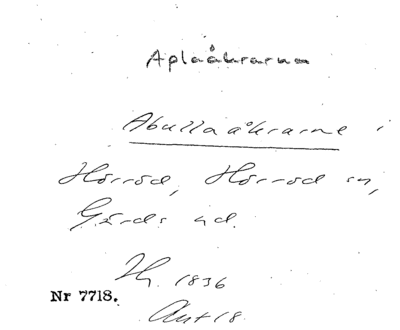 Aplaåkrarna
Abullaåkrarne i
Hörröd, Hörröd sn,
Gärds hd.
Nr 7718.
1836
Akt 18